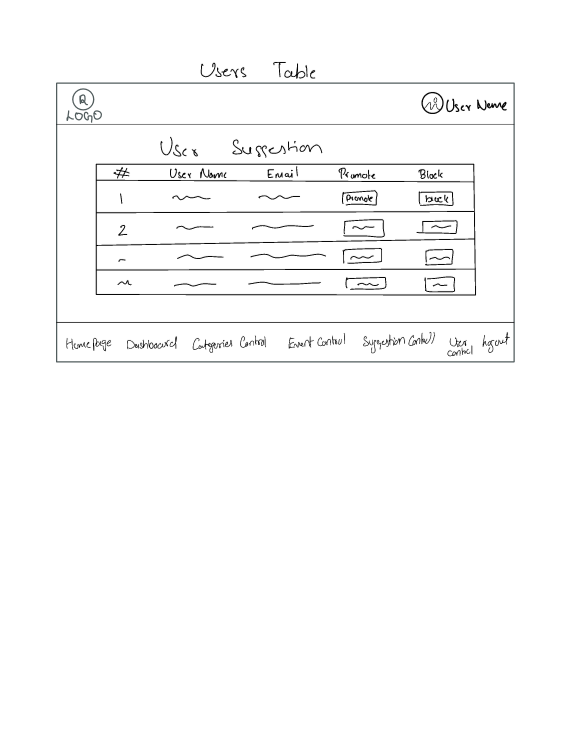 Users Table
R
LOGO
User Name
User Suggestion
# User Name Email Promote Block
1 Promote block
2
Home Page Dashboard Categories Control Event Control Suggestion Control User control logout